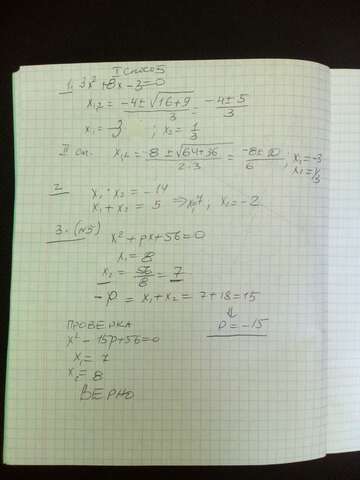 I способ
1. 3x² + 8x - 3 = 0
x₁,₂ = (-4 ± √(16+9))/3 = (-4 ± 5)/3
x₁ = -3 ; x₂ = 1/3
II сп. x₁,₂ = (-8 ± √(64+36))/(2·3) = (-8 ± 10)/6, x₁ = -3
x₂ = 1/3
2. x₁ · x₂ = -14
x₁ + x₂ = 5 ⇒ x₁ = 7, x₂ = -2
3. (№5)
x² + px + 56 = 0
x₁ = 8
x₂ = 56/8 = 7
-p = x₁ + x₂ = 7 + 18 = 15
⇓
p = -15
ПРОВЕРКА
x² - 15p + 56 = 0
x₁ = 7
x₂ = 8
ВЕРНО